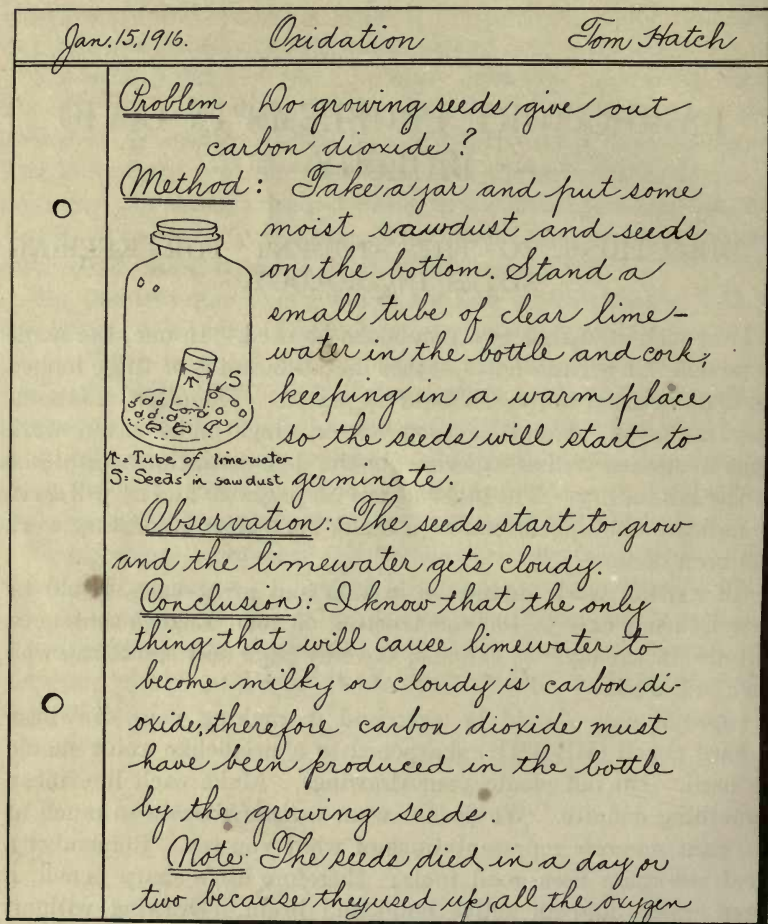 Jan. 15, 1916. Oxidation Tom Hatch
Problem Do growing seeds give out
carbon dioxide?
Method: Take a jar and put some
moist sawdust and seeds
on the bottom. Stand a
small tube of clear lime-
water in the bottle and cork,
keeping in a warm place
so the seeds will start to
germinate.
S
T
T = Tube of limewater
S = Seeds in sawdust
Observation: The seeds start to grow
and the limewater gets cloudy.
Conclusion: I know that the only
thing that will cause limewater to
become milky or cloudy is carbon di-
oxide, therefore carbon dioxide must
have been produced in the bottle
by the growing seeds.
Note: The seeds died in a day or
two because they used up all the oxygen